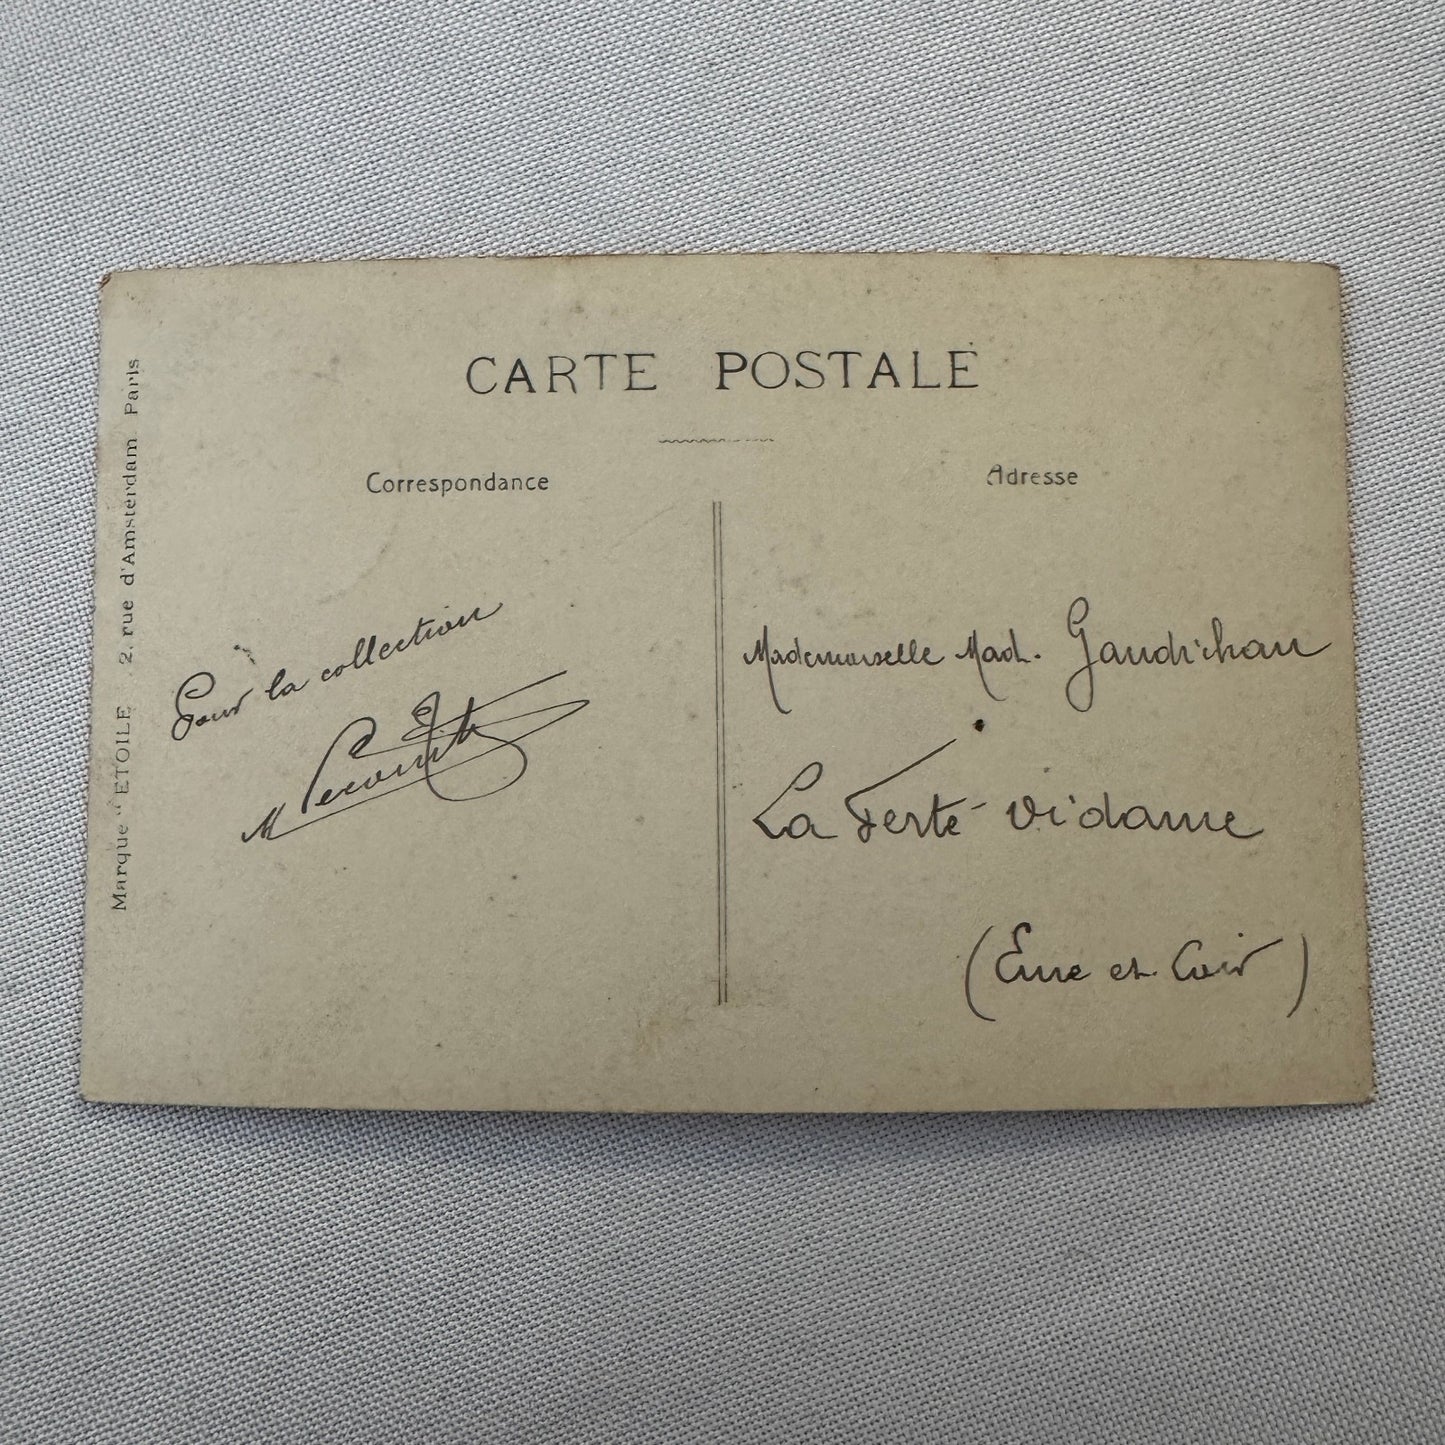 CARTE POSTALE
Correspondance
Adresse
Marque "ETOILE 2, rue d'Amsterdam Paris
Pour la collection
M
Mademoiselle Mad. Gaudichau
La Ferté-Vidame
(Eure et Loir)